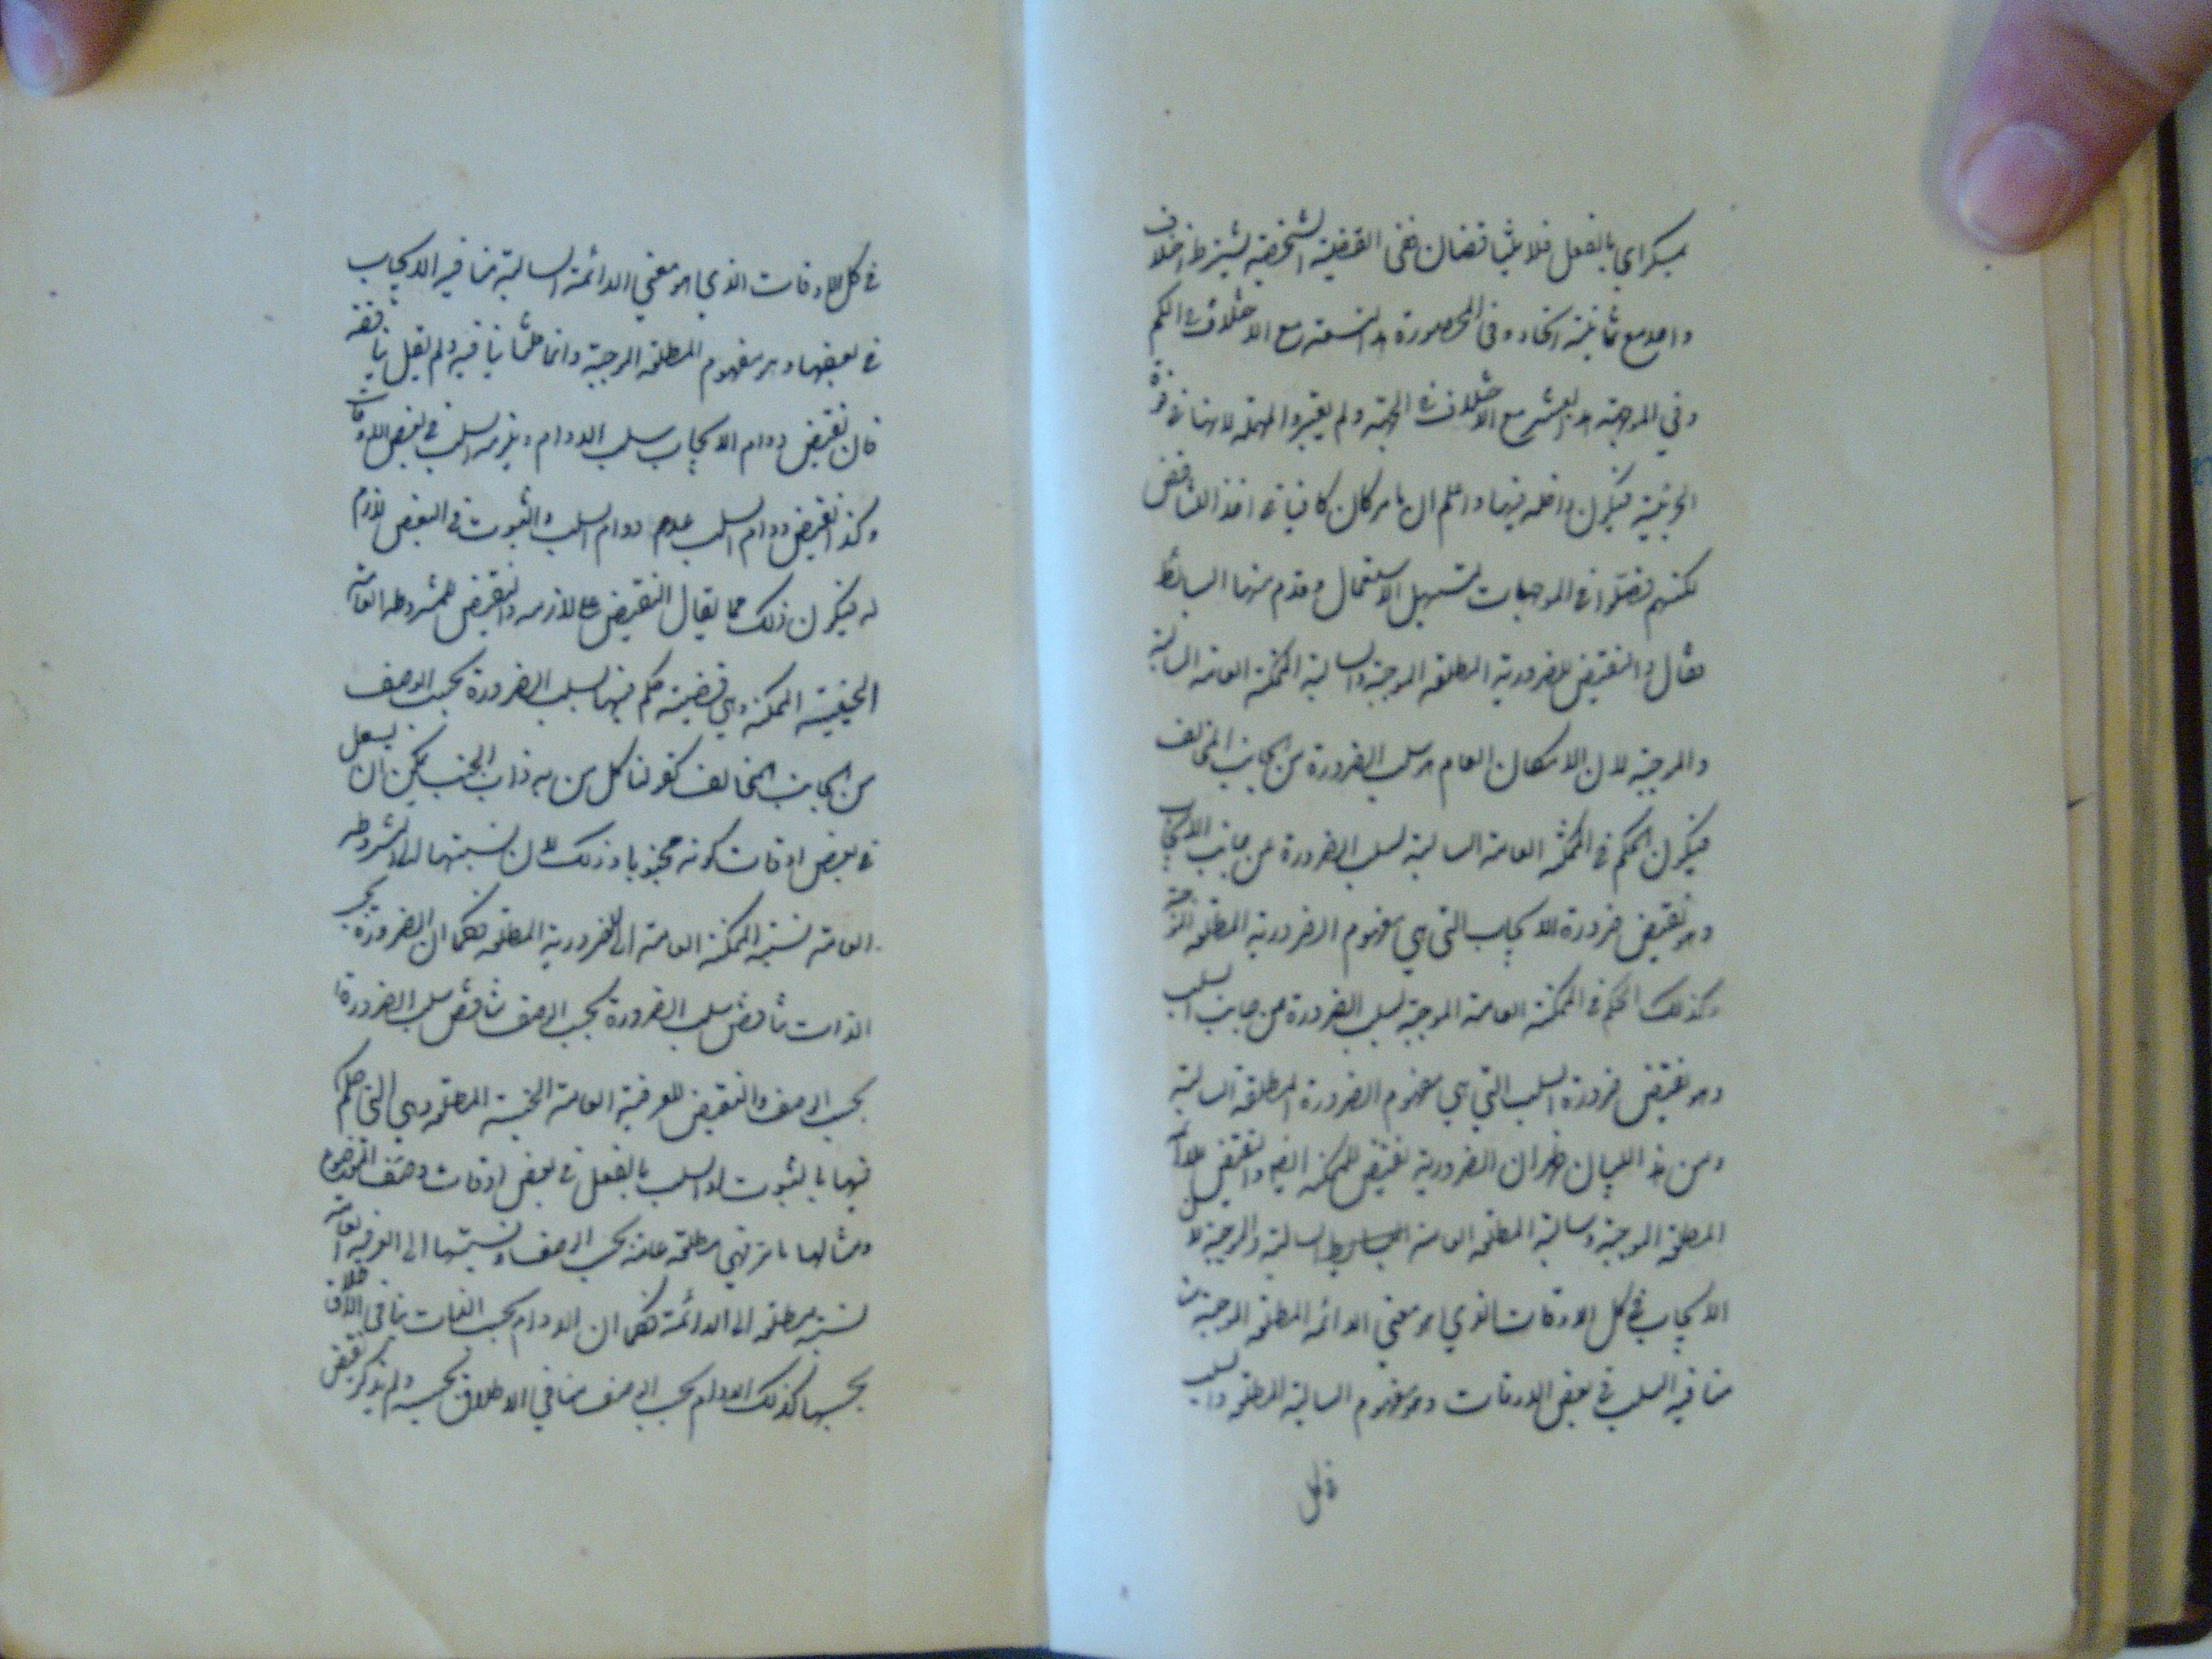 بمسكر اي بالفعل فلا يتناقضان ففي القضية الشخصية يشترط اختلاف
واحد مع ثمانية اتحاد وفي المحصورة هذا التسعة مع الاختلاف في الكم
وفي الموجهة هذا العشر مع الاختلاف في الجهة ولم يعتبروا المهملة لانها في قوة
الجزئية فيكون داخلة فيها واعلم ان ما مر كان كافيا في اخذ التناقض
لكنهم فصلوا في الموجهات لتسهيل الاستعمال وقدم منها البسائط
فقال والنقيض للضرورية المطلقة الموجبة والسالبة الممكنة العامة السالبة
والموجبة لان الامكان العام هو سلب الضرورة من الجانب المخالف
فيكون الحكم في الممكنة العامة السالبة بسلب الضرورة عن جانب الايجاب
وهو نقيض ضرورة الايجاب التي هي مفهوم الضرورية المطلقة الموجبة
وكذلك الحكم في الممكنة العامة الموجبة بسلب الضرورة عن جانب السلب
وهو نقيض ضرورة السلب التي هي مفهوم الضرورة المطلقة السالبة
ومن هذا البيان ظهر ان الضرورية نقيض للممكنة ايضا والنقيض للدائمة
المطلقة الموجبة وسالبة المطلقة العامة السالبة والموجبة لا
الايجاب في كل الاوقات الذي هو معني الدائمة المطلقة الموجبة
منافيه السلب في بعض الاوقات وهو مفهوم السالبة المطلقة والسلب
في كل
في كل الاوقات الذي هو معني الدائمة السالبة ينافيه الايجاب
في بعضها وهو مفهوم المطلقة الموجبة وانما قلنا ينافيه ولم نقل يناقضه
فان نقيض دوام الايجاب سلب الدوام ويلزمه السلب في بعض الاوقات
وكذا نقيض دوام السلب عدم دوام السلب والثبوت في البعض لازم
له فيكون ذلك مما يقال النقيض على لازمه والنقيض للمشروطه العامة
الحينية الممكنة وهي قضية حكم فيها بسلب الضرورة بحسب الوصف
من الجانب المخالف كقولنا كل من به ذات الجنب يمكن ان يسعل
في بعض اوقات كونه مجنوبا وذلك لان نسبتها الى المشروطه
العامة نسبة الممكنة العامة الى الضرورية المطلقة فكما ان الضرورة بحسب
الذات تناقض سلب الضرورة بحسب الوصف تناقض سلب الضرورة
بحسب الوصف والنقيض للعرفية العامة الحينية المطلقة وهي التي حكم
فيها بالثبوت او السلب بالفعل في بعض اوقات وصف الموضوع
ومثالها ما مر فهي مطلقة عامة بحسب الوصف ونسبتها الى العرفية العامة
نسبة مطلقة الى الدائمة فكما ان الدوام بحسب الذات ينافي الاطلاق
بحسبها كذلك الدوام بحسب الوصف ينافي الاطلاق بحسبه ولم يذكر نقيض